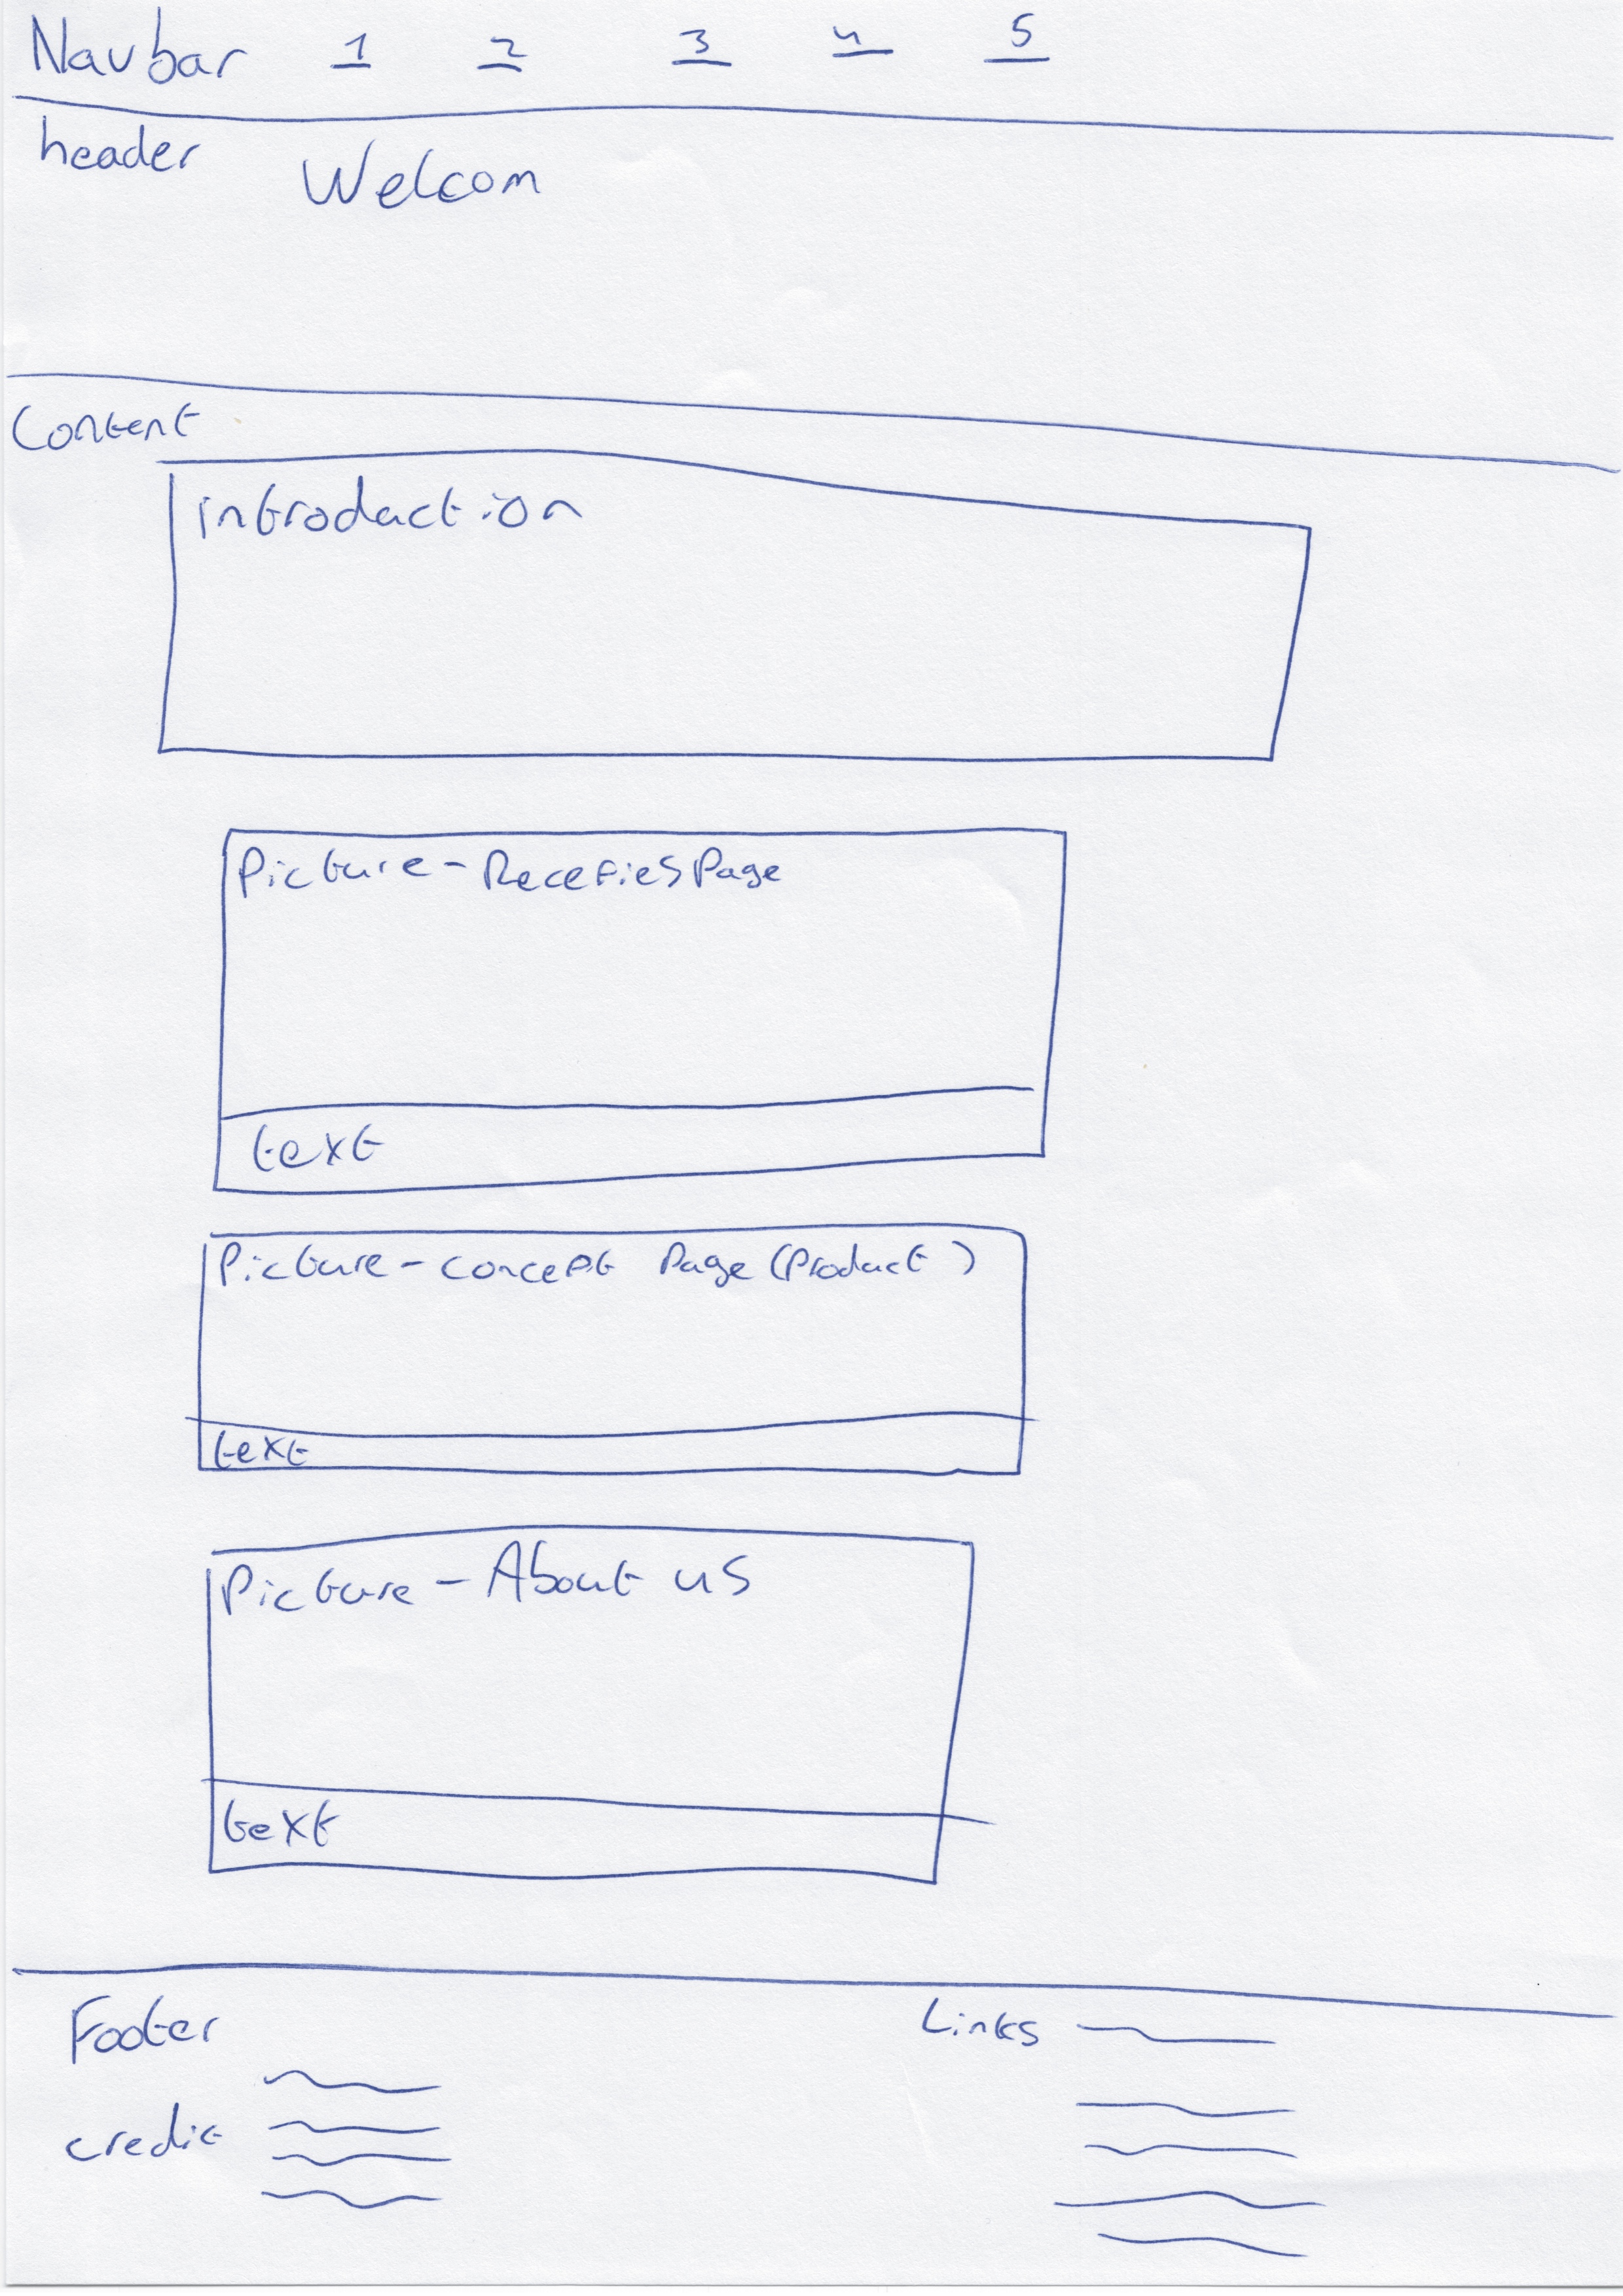 Navbar 1 2 3 4 5
header
Welcom
Content
introduction
Picture - Recepies Page
text
Picture - concept Page (Product)
text
Picture - About us
text
Footer
Links
credit